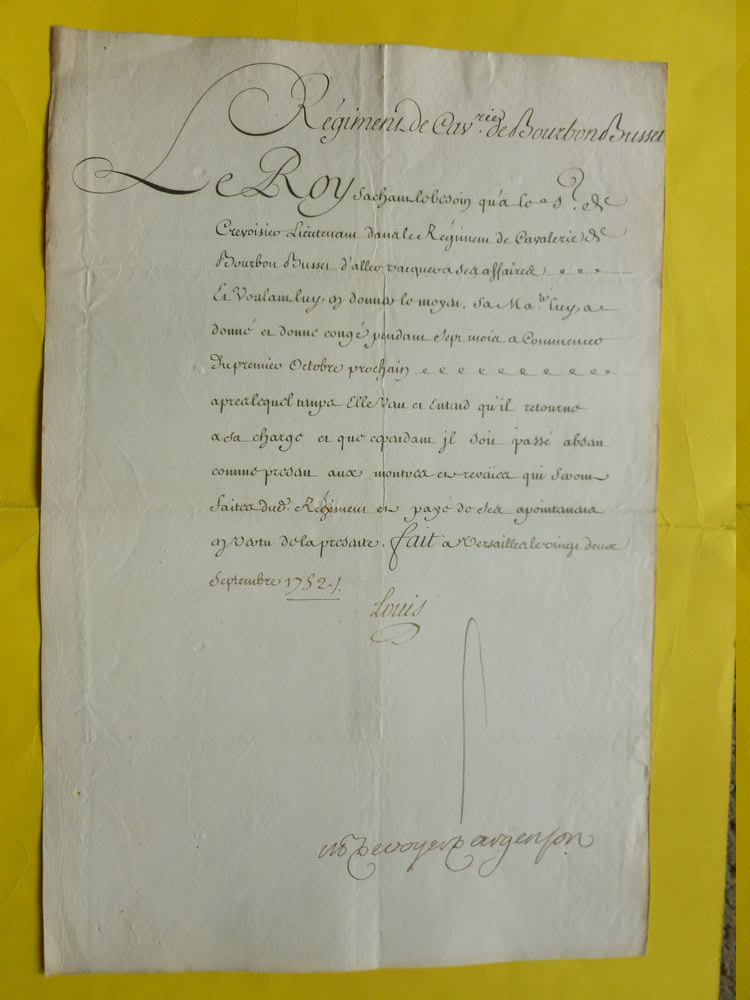 Régiment de Cav.rie de Bourbon Busset
Le Roy sachant le besoin qu'a le S.r de
Crevoisier Lieutenant dans le Régiment de Cavalerie de
Bourbon Busset d'aller vacquer a ses affaires
Et Voulant luy en donner le moyen, Sa Ma.té luy a
donné et donne congé pendant sept mois a Commencer
du premier Octobre prochain
apres lequel temps Elle Veut et Entend qu'il retourne
a sa charge et que cependant jl soit passé absent
comme present aux montres et reveües qui seront
faites dud. Régiment et payé de ses apointemens
en vertu de la presente. fait a Versailles le vingt deux
Septembre 1752 ./.
Louis
M De voyer D argenson